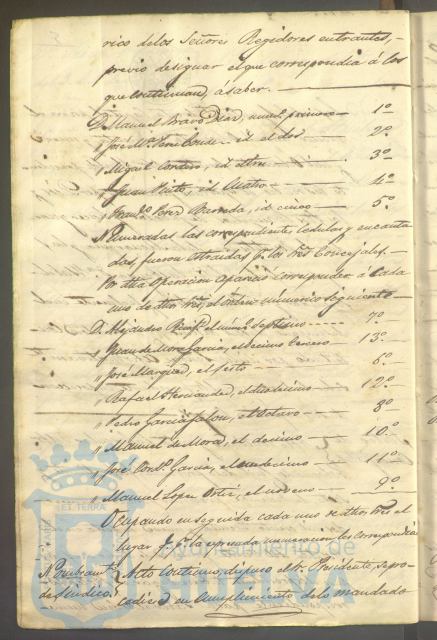 rico de los Señores Regidores entrantes,
previo designar el que correspondia á los
que continuan, á saber.
D. Manuel Bravo Diaz, num.º primero 1º
" José Mª id el dos 2º
" Miguel Cordero, id tres 3º
" Juan Pinto, id Cuatro 4º
" Franº Perez Barreda, id cinco 5º
Numeradas las correspondientes cedulas y encanta
das, fueron extraidas pr los Sres Concejales.
Por dha operacion aparecio corresponder á cada
uno de dhos Sres, el orden numerico siguiente
D. Alejandro el numº Septimo 7º
" Juan de Mora Garcia, el decimo tercero 13º
" José Marquez, el sesto 6º
" Rafael Hernandez, el duodecimo 12º
" Pedro Garcia Jalon, el Octavo 8º
" Manuel de Mora, el decimo 10º
" José Garcia, el undecimo 11º
" Manuel Lopez Ortiz, el noveno 9º
Ocupando en seguida cada uno de dhos Sres el
lugar q. pr la espresada numeracion les correspondia
Nombramto Acto continuo, dispuso el Sr. Presidente, se pro
de Sindico. cediese en Cumplimiento de lo mandado
Ayuntamiento de
HUELVA